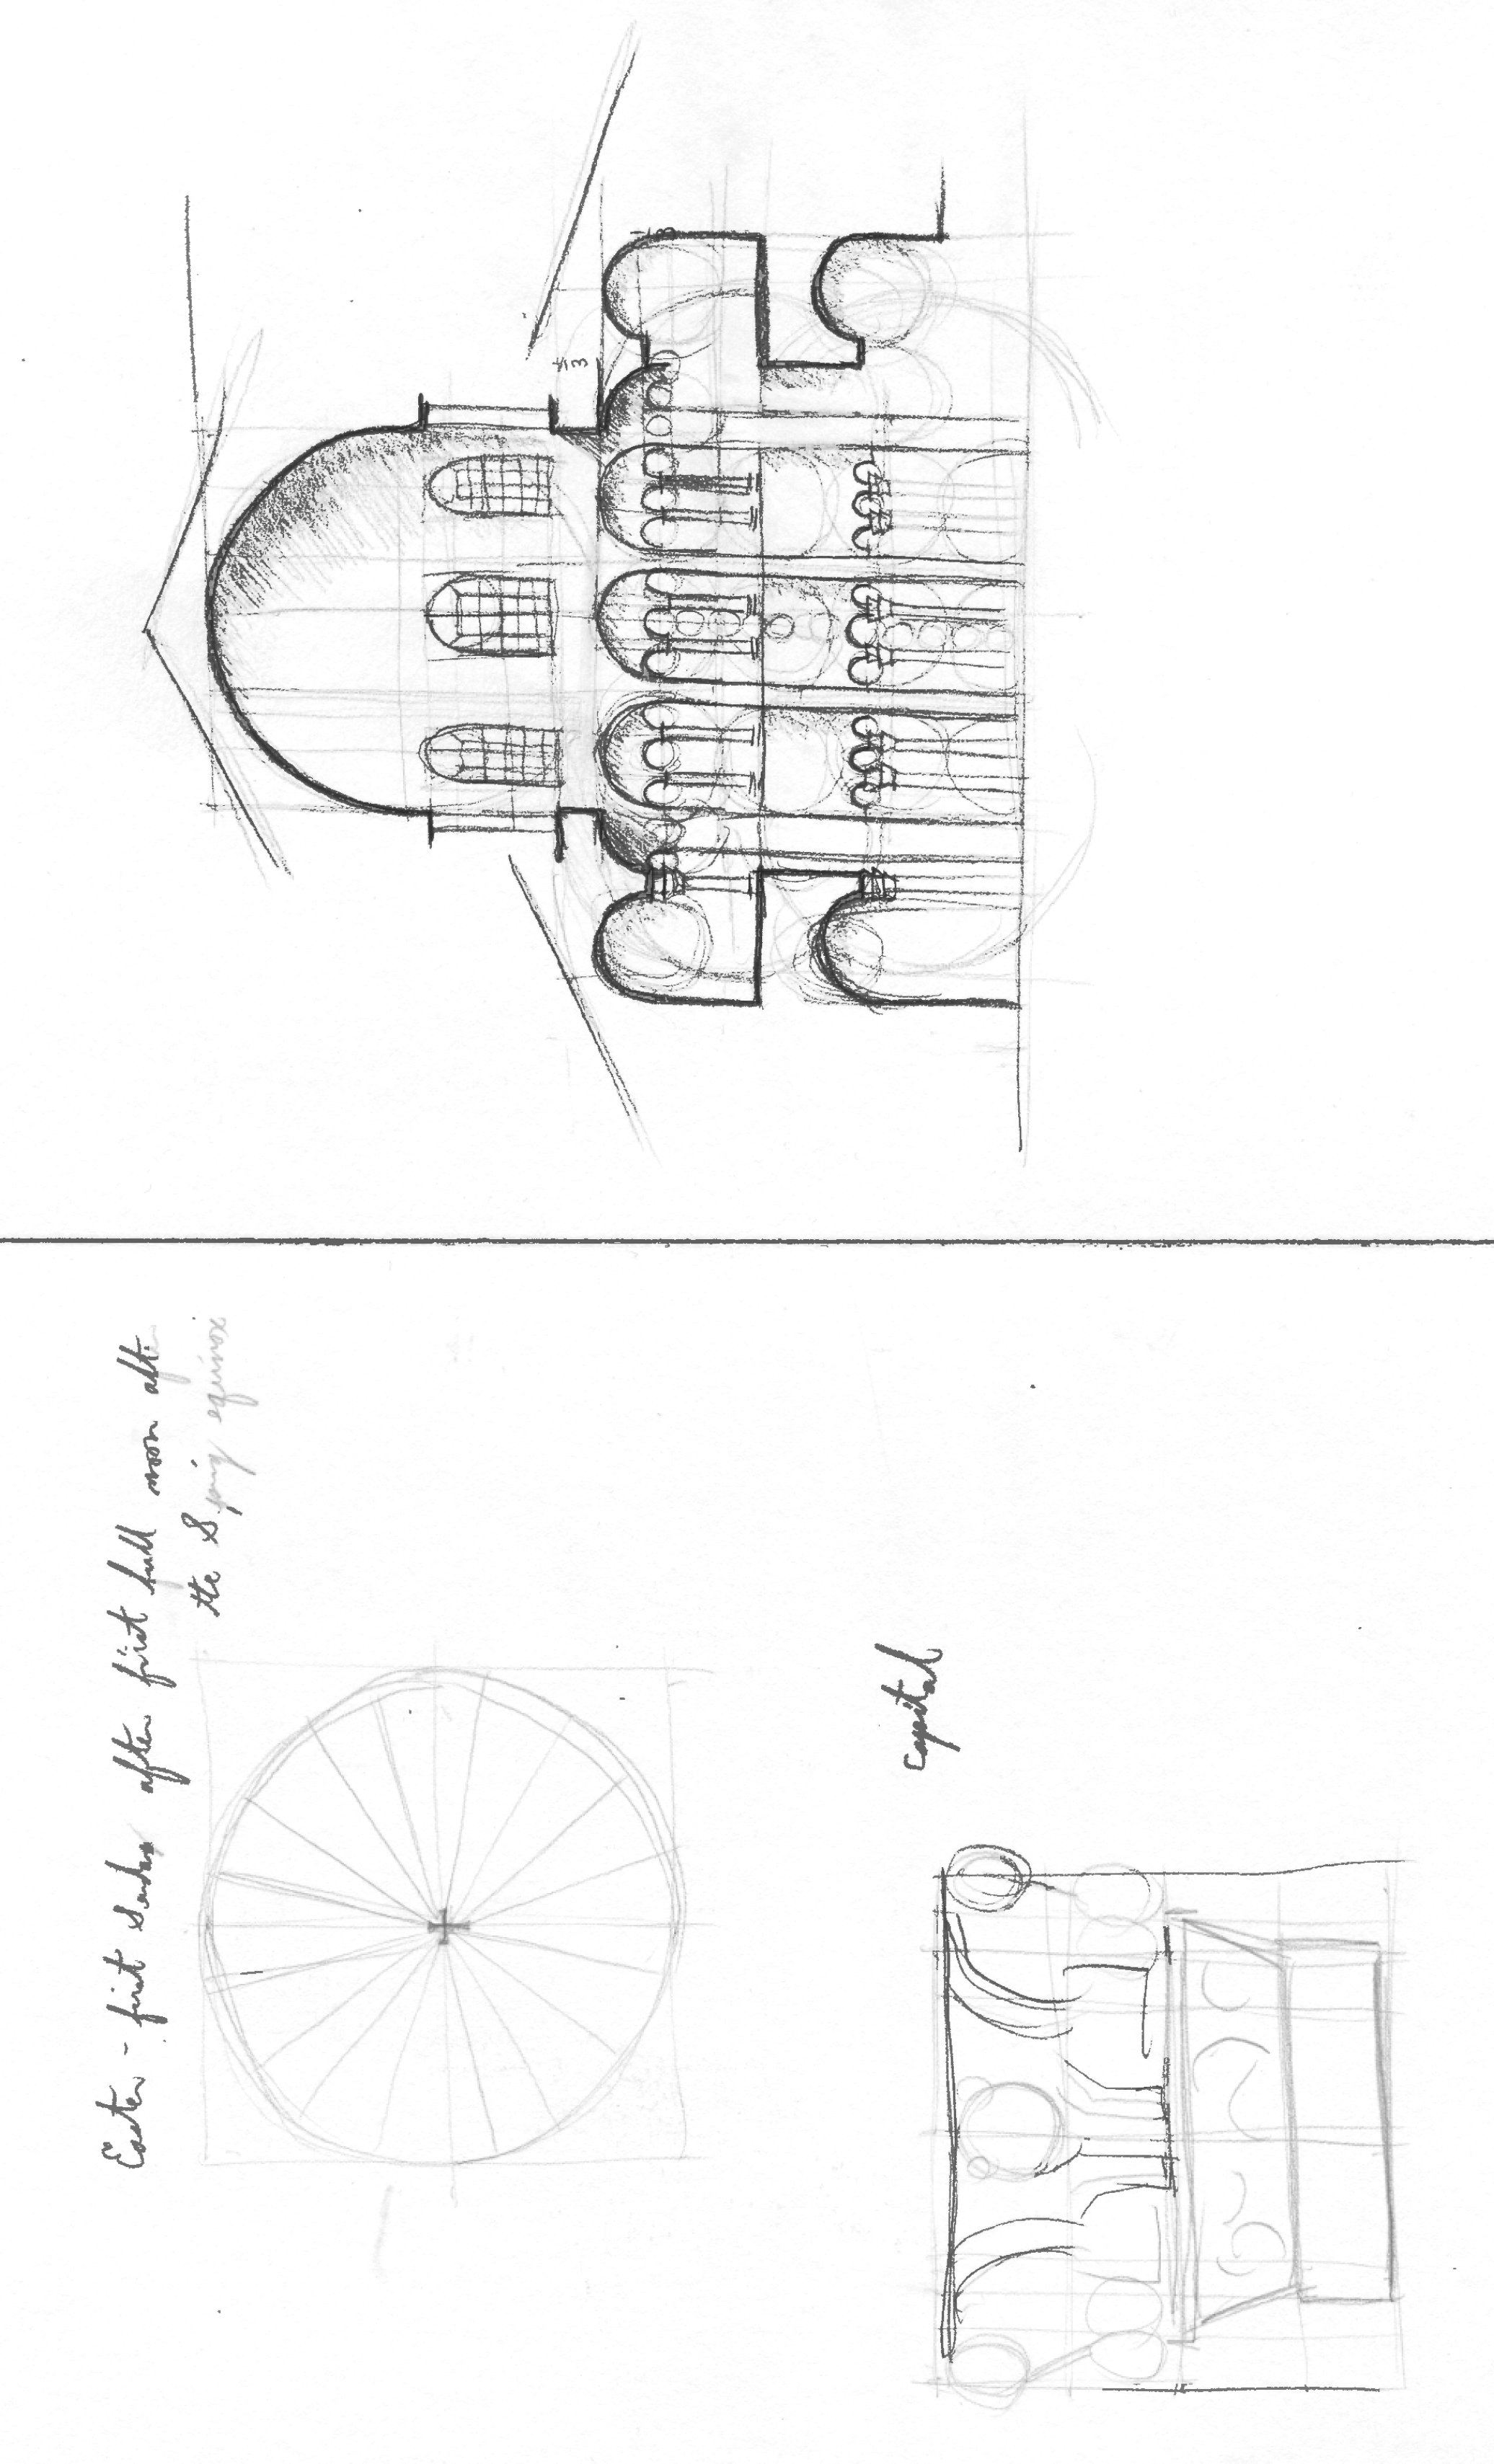 Easter - first Sunday after first full moon after
the Spring equinox
capital
1/3
1/3